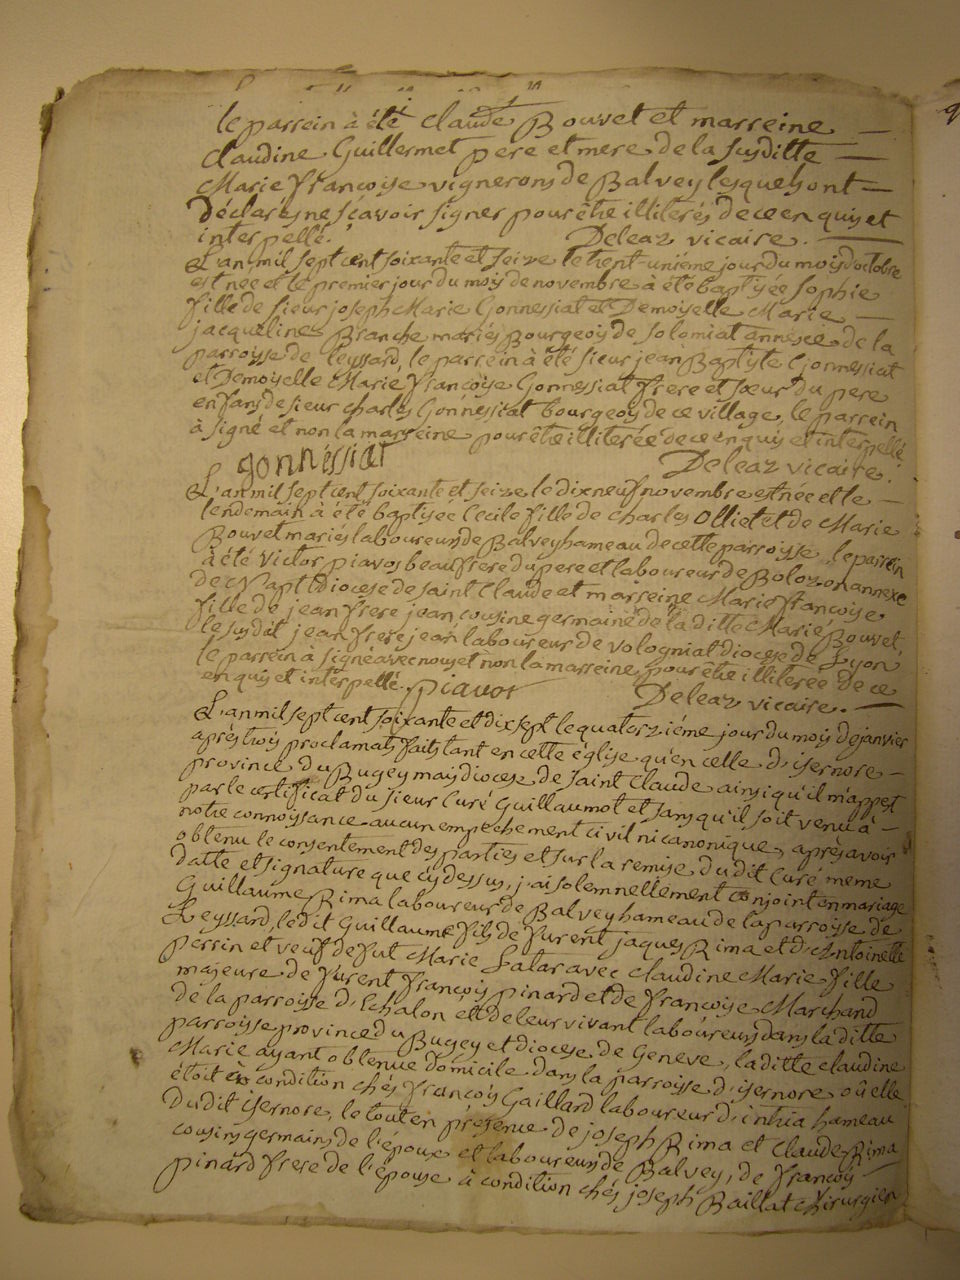 le parrein à été Claude Bouvet et marreine
Claudine Guillermet pere et mere de la susditte
Marie Françoise vignerons de Balvey lesquels ont
déclarés ne sçavoir signer pour être illiterés de ce enquis et
interpellé. Deleaz vicaire.
L'an mil sept cent soixante et seize le trent-unième jour du mois d'octobre
est nee et le premier jour du mois de novembre a été baptisée Sophie
fille de sieur joseph Marie Gonnessiat et Demoiselle Marie
jacqueline Branche mariés Bourgeois de Solomiat annexe de la
parroisse de Leyssard, le parrein à été sieur jean Baptiste Gonnessiat
et Demoyselle Marie Françoise Gonnessiat frere et sœur du pere
enfans de sieur Charles Gonnessiat bourgeois de ce village, le parrein
à signé et non la marreine pour être illiterée de ce enquis et interpellé
gonnéssiat Deleaz vicaire.
L'an mil sept cent soixante et seize le dix neuf novembre est née et le
lendemain à été baptisee Cecile fille de Charles Olliet et de Marie
Bouvet mariés laboureurs de Balvey hameau de cette parroisse, le parrein
à été Victor piavos beau frere du pere et laboureur de Bolozon annexe
de Napt diocese de saint Claude et marreine Marie Françoise
fille de jean frere jean, cousine germaine de la ditte Marie Bouvet,
le susdit jean frere jean laboureur de volognat diocese de Lyon
le parrein à signé avec nous et non la marreine, pour être illiterée de ce
enquis et interpellé. piavor Deleaz vicaire.
L'an mil sept cent soixante et dix sept le quatorzième jour du mois de janvier
après trois proclamats faits tant en cette église qu'en celle d'isernore
province du Bugey mais diocese de saint Claude ainsi qu'il m'appert
par le certificat du sieur Curé Guillaumot et sans qu'il soit venu à
notre connoissance aucun empêchement civil ni canonique, après avoir
obtenu le consentement des parties et sur la remise du dit Curé meme
datte et signature que cy dessus, j'ai solemnellement conjoint en mariage
Guillaume Rima laboureur de Balvey hameau de la parroisse de
Leyssard, ledit Guillaume fils de furent jaques Rima et d'Antoinette
perrin et veuf de fut Marie Latar avec Claudine Marie fille
majeure de furent François pinard et de Françoise Marchand
de la parroisse d'Echalon et de leur vivant laboureurs dans la ditte
parroisse province du Bugey et diocese de Geneve, la ditte Claudine
Marie ayant obtenue domicile dans la parroisse d'isernore où elle
étoit à condition chés François Gaillard laboureur d'intria hameau
du dit isernore, le tout en présence de joseph Rima et Claude Rima
cousins germains de l'époux et laboureurs de Balvey, de François
pinard frere de l'épouse à condition chés joseph Baillat chirurgien